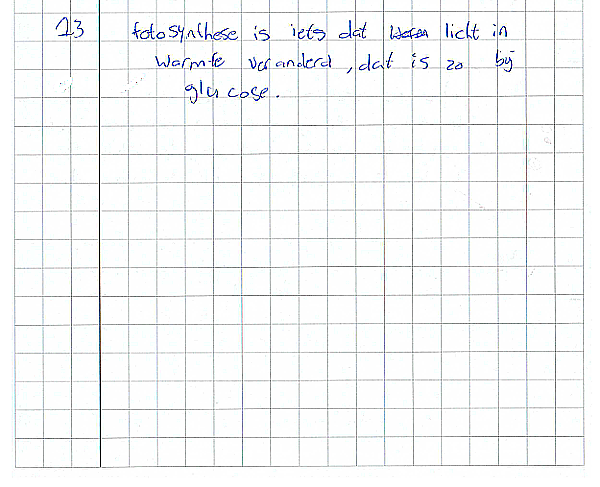 13 fotosynthese is iets dat licht in
warmte veranderd, dat is zo bij
glucose.